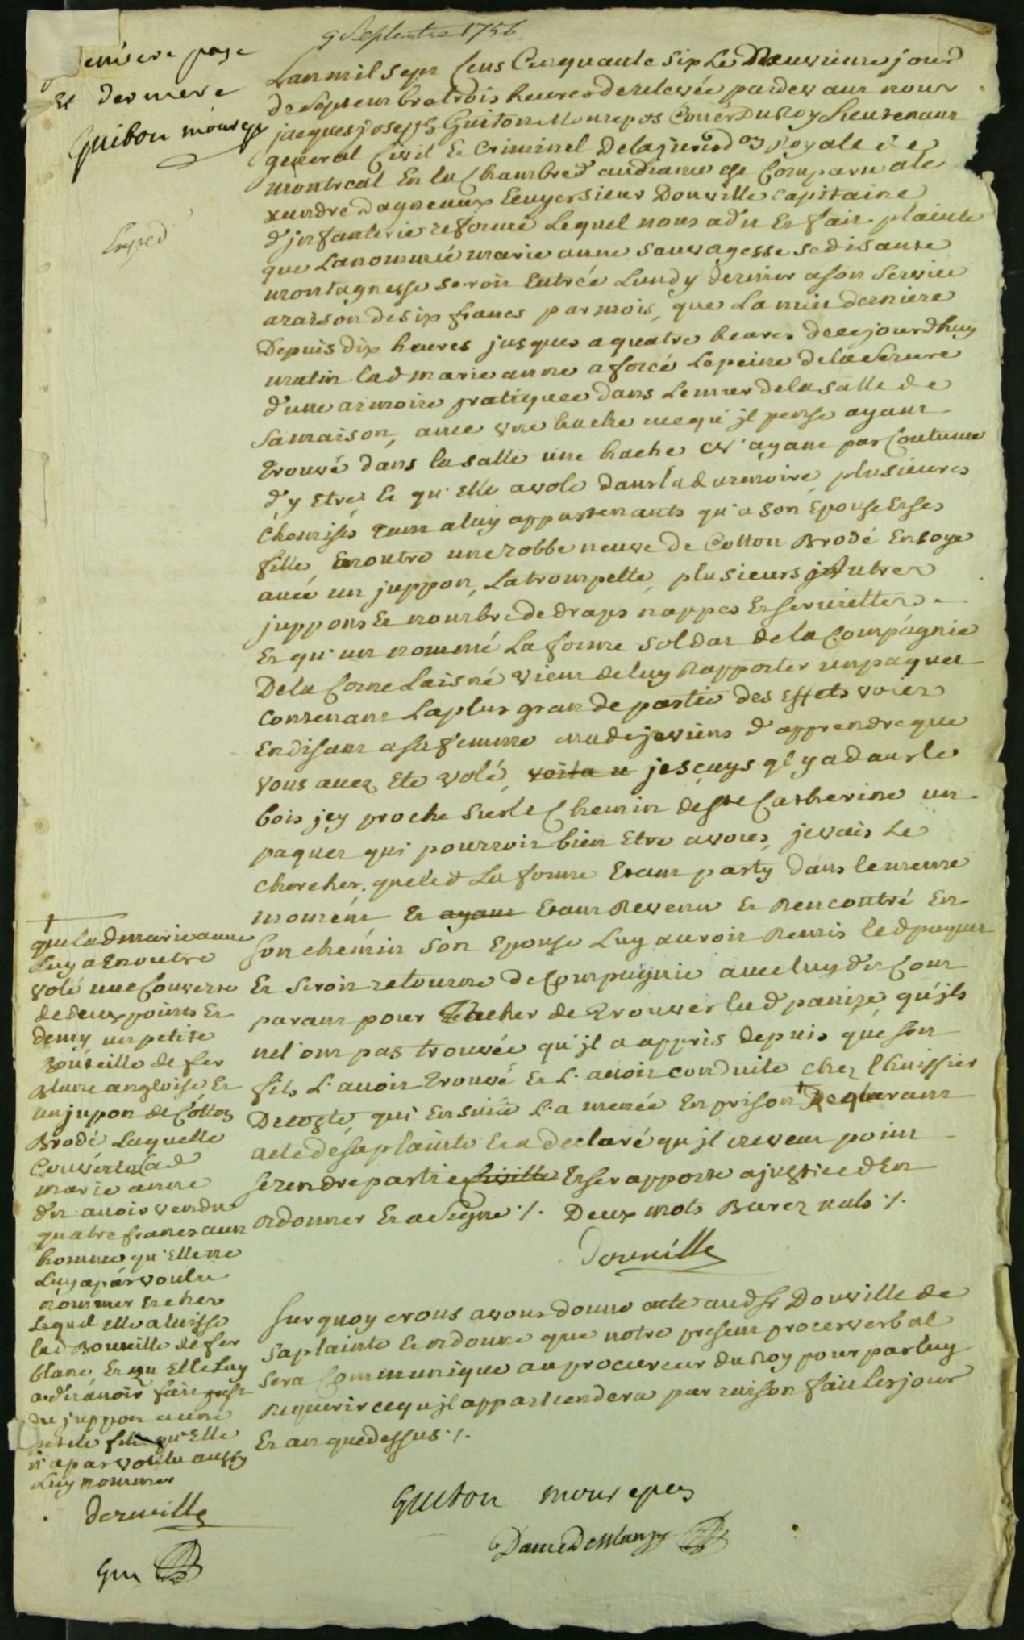 9 Septembre 1756
Premiere page
Et derniere
Guiton monrepos
Exped
Lan mil sept Cens Cinquante six Le Neuvieme jour
de Septembre trois heures de relevée pardevant nous
jacques joseph Guiton Monrepos Coner Du Roy Lieutenant
general Civil Et Criminel De la jurisdon Royale de
montreal En la Chambre d'audiance est Comparu ale
xandre dagneaux Ecuyer sieur Douville Capitaine
d'jnfanterie reformé Lequel nous a dit Et fait plainte
que La nommée marie anne Sauvagesse se disante
montagnesse seroit Entrée Lundy dernier a son Service
a raison de six francs par mois, que La nuit derniere
Depuis dix heures jusques a quatre heures de cejourdhuy
matin lad marie anne a forcé Le peine de la Serure
d'une armoire pratiquee dans Le mur de la Salle de
Sa maison, avec une hache ace qu'jl pense ayant
trouvé dans la salle une hache n'ayant pas Coutume
d'y Etre Et qu'Elle a volé dans lad armoire plusieurs
chemises tant a luy appartenants qu'a son Epouse Et ses
fille Enoutre une robbe neuve de Cotton Brodé En soye
avec un juppon, La trompette, plusieurs autres
juppons Et nombre de draps nappes Et serviettes
Et qu'un nommé La forme soldat de la Compagnie
De la Corne Laisné vient de luy Rapporter un paquet
Contenant La plus grande partie des Effets volés
En disant a sa femme made je viens d'apprendre que
vous avez Eté volé, voila u je scays ql y a dans le
bois jcy proche sur le Chemin de Ste Catherine un
paquet qui pourroit bien Etre a vous, je vais Le
chercher. que led La forme Etant party dans le meme
moment Et ayant Etant Revenu Et Rencontré En
son chemin son Epouse Luy auroit Remis led paquet
Et seroit retourné de Compagnie avec luy dt Com
parant pour Tacher de trouver lad panize qu'jls
nel'ont pas trouvée qu'jl a appris depuis que son
fils L'avoit trouvé Et L'avoit conduite chez l'huissier
Decoste, qui Ensuite L'a menée En prison † Requerant
acte de sa plainte Et a declaré qu'jl ne veut point
se rendre partie Civille Et s'en rapporte a justice d'En
ordonner Et a signé ./. Deux mots Barez nuls ./.
Douville
†
que lad marie anne
Luy a Enoutre
volé une Couverte
de deux points Et
demy un petite
Bouteille de fer
blanc angloise Et
un jupon de Cotton
Brodé Laquelle
Couverte lad
marie anne
dit avoir vendu
quatre francs a un
homme qu'Elle ne
Luy a pas voulu
nommer Et chez
Lequel Elle a laissé
lad Bouteille de fer
blanc Et qu Elle Luy
a dit avoir fait
du juppon a une
petite fille qu'Elle
n'a pas voulu aussy
Luy nommer
Douville
Gui
Sur quoy nous avons donné acte aud Sr Douville de
Sa plainte Et ordonne que notre present procesverbal
Sera Communiqué au procureur du Roy pour par luy
Requerir ce qu'jl appartiendra par raison fait les jour
Et an que dessus ./.
Guiton monrepos
Danré De blanzy